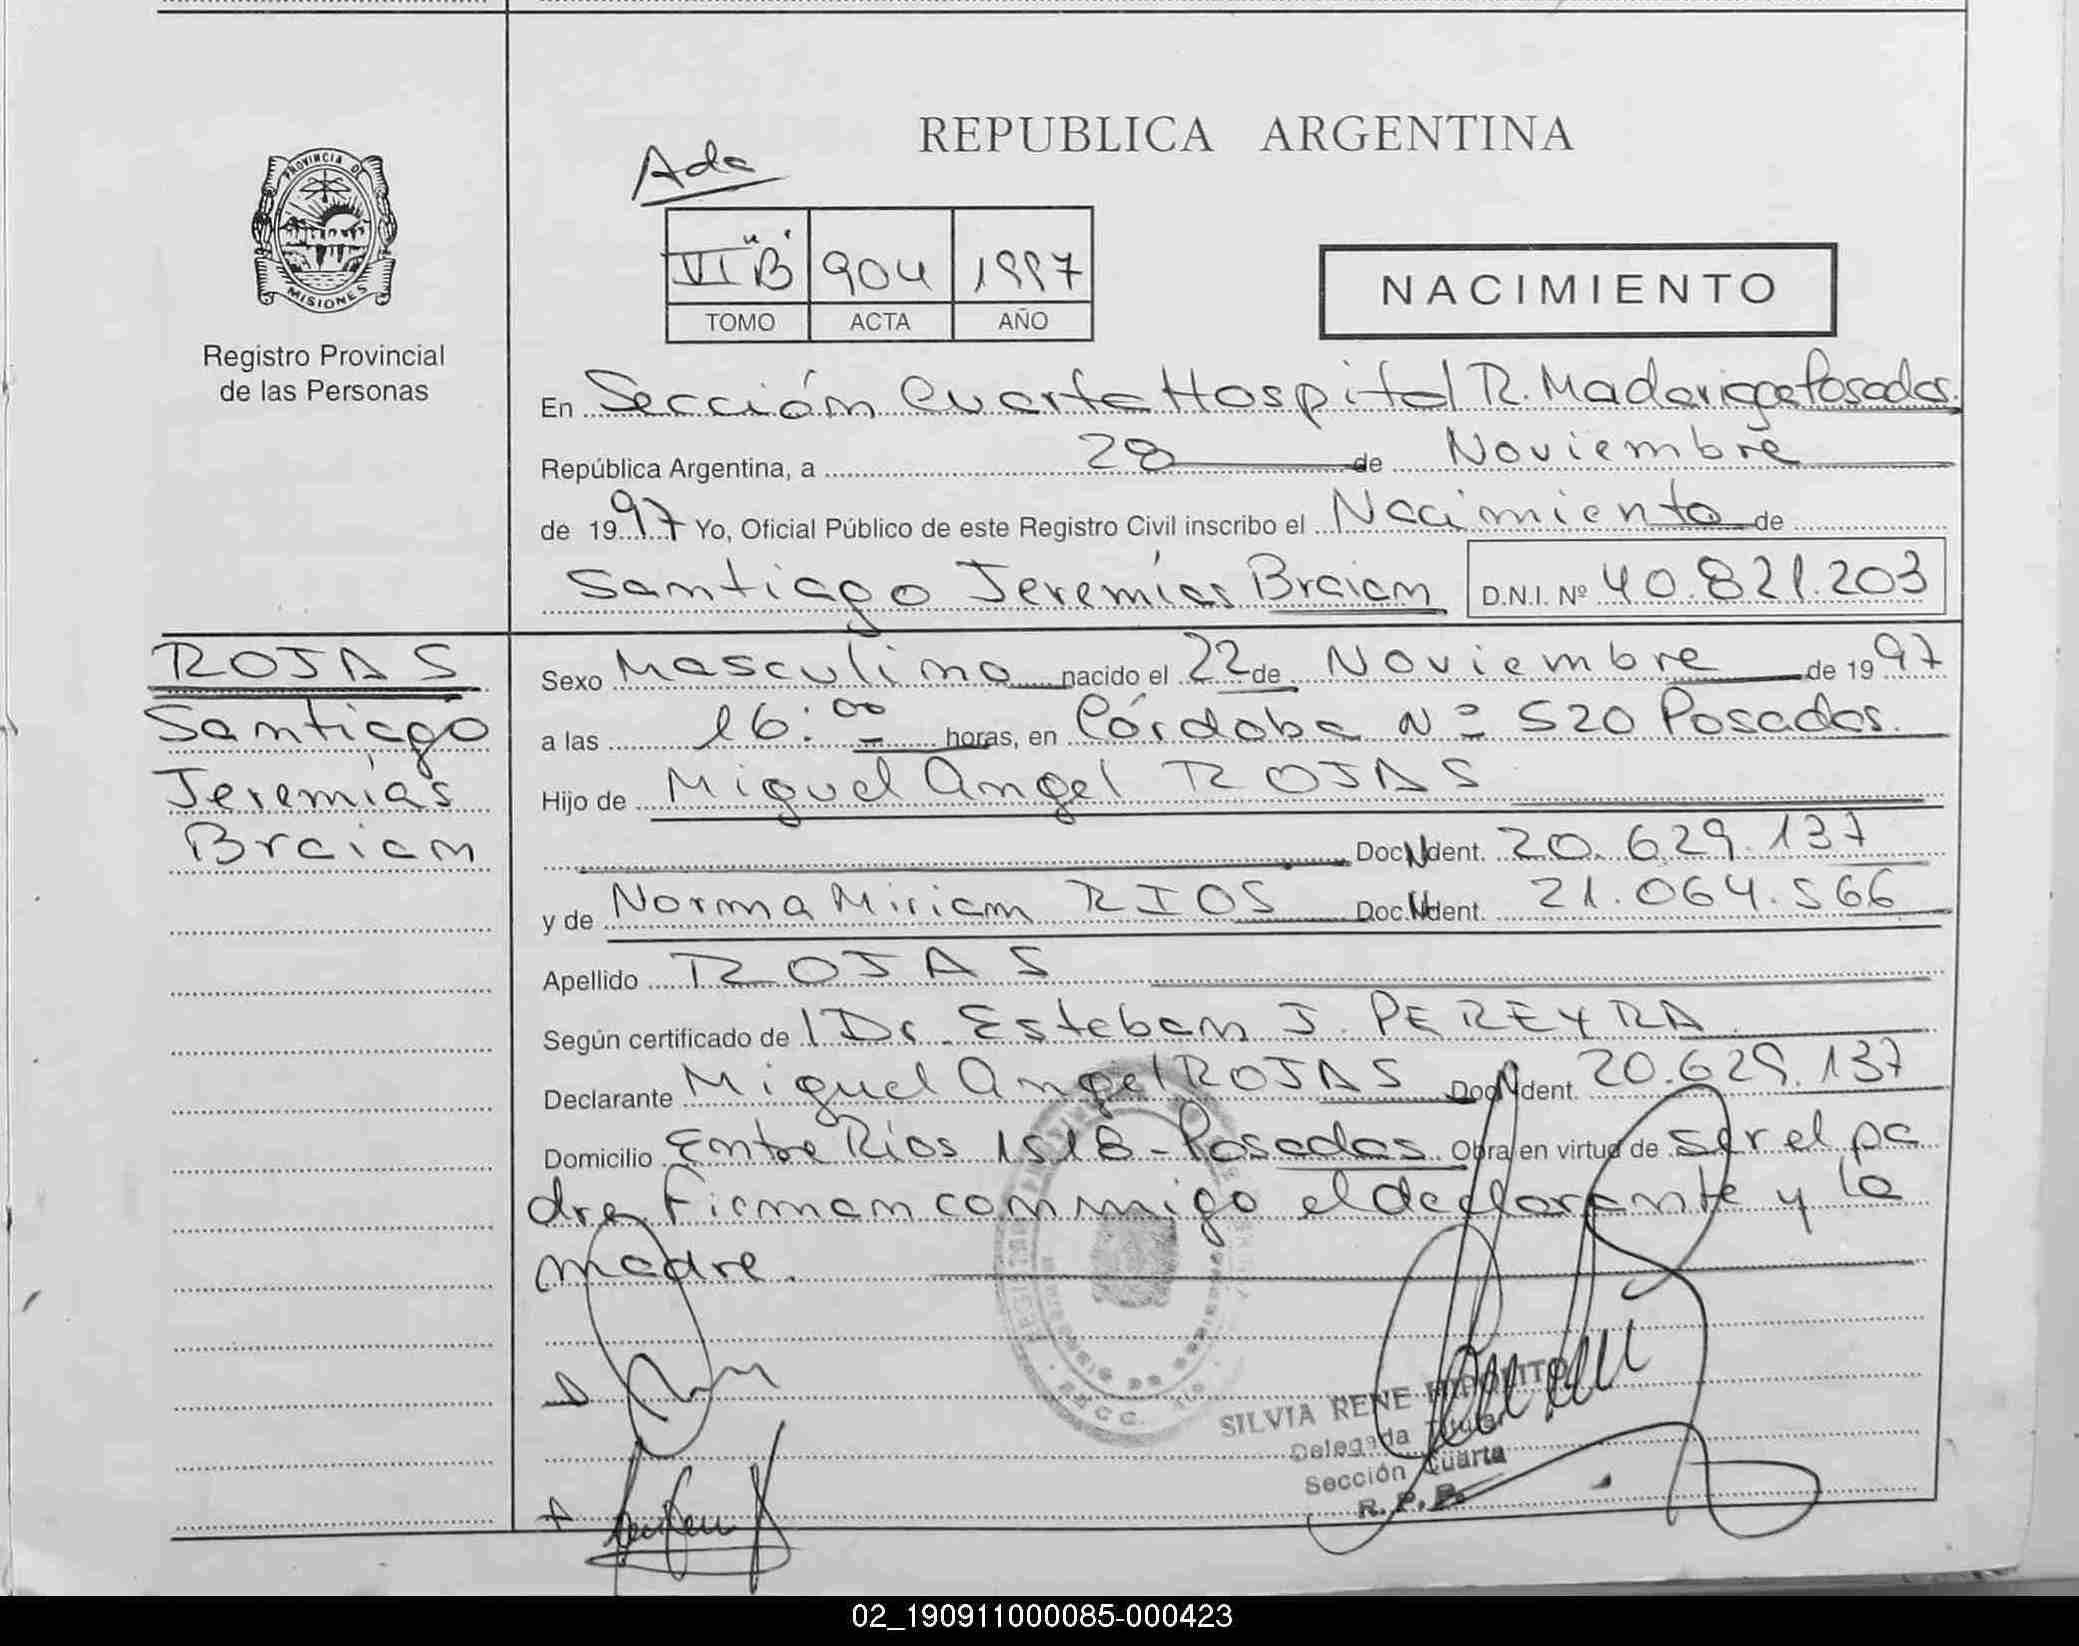 REPUBLICA ARGENTINA
Ada
PROVINCIA DE
MISIONES
Registro Provincial
de las Personas
VI "B" 904 1997
TOMO ACTA AÑO
NACIMIENTO
En Sección Cuarta Hospital R. Madariaga Posadas.
República Argentina, a 28 de Noviembre
de 1997 Yo, Oficial Público de este Registro Civil inscribo el Nacimiento de
Santiago Jeremías Braian D.N.I. Nº 40.821.203
ROJAS
Santiago
Jeremías
Braian
Sexo Masculino nacido el 22 de Noviembre de 1997
a las 16:00 horas, en Córdoba Nº 520 Posadas.
Hijo de Miguel Angel ROJAS
Doc. Ident. 20.629.137
y de Norma Miriam RIOS Doc. Ident. 21.064.566
Apellido ROJAS
Según certificado de l Dr. Esteban J. PEREYRA
Declarante Miguel Angel ROJAS Doc. Ident. 20.629.137
Domicilio Entre Ríos 1518 - Posadas Obra en virtud de ser el pa
dre firman conmigo el declarante y la
madre.
SILVIA RENE HIPOLITO
Delegada Titular
Sección Cuarta
R. P. P.
02_190911000085-000423